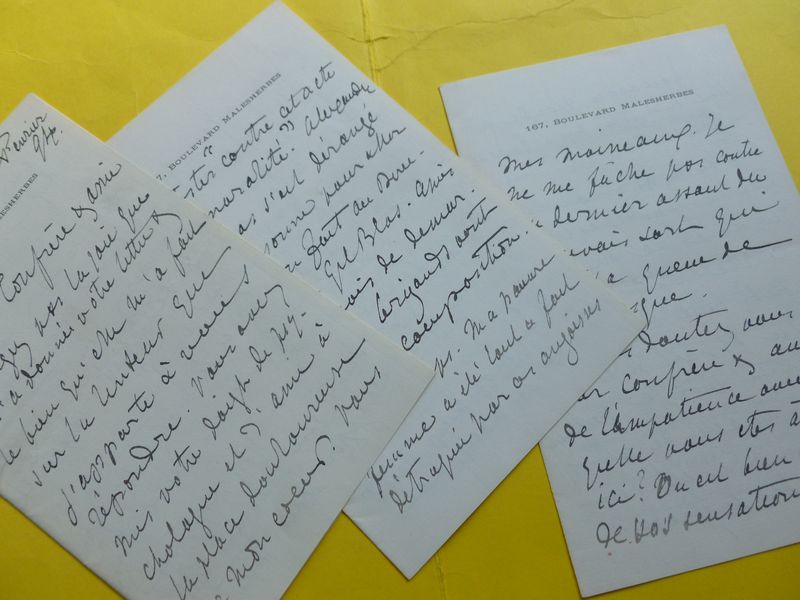 Février
94.
MALESHERBES
Confrère & ami
pas la joie que
m'a donnée votre lettre &
le bien qu'elle m'a fait
sur la lenteur que
j'apporte à vous
répondre. Vous avez
mis votre doigt de psy-
chologue et d'ami à
la place douloureuse
de mon coeur. Vous
7, BOULEVARD MALESHERBES
contre cet acte
moralité". Alexandre
s'est dérangé
pour aller
au Direc-
Gil Blas. Après
mois de
brigands ont
composition.
ps. Ma pauvre
femme a été tout à fait
détraquée par ces angoisses
167, BOULEVARD MALESHERBES
mes moineaux. Je
ne me fâche pas contre
dernier assaut du
mauvais sort qui
a queue de
doutez vous
confrère & ami
de l'impatience avec
quelle vous êtes a
ici? Ou est bien
de vos sensations